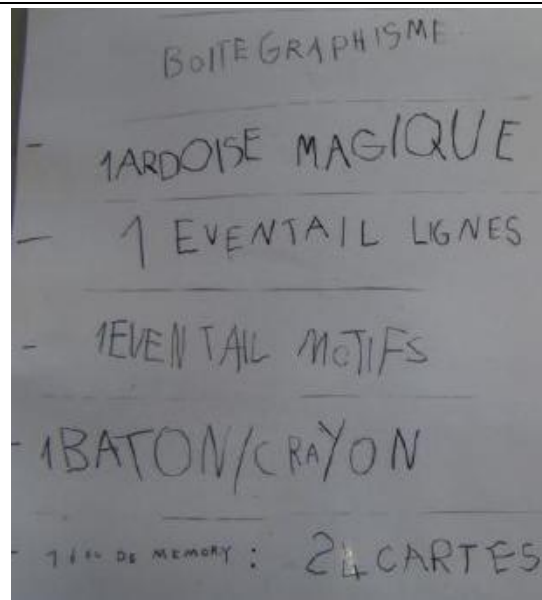 BOITE GRAPHISME
- 1 ARDOISE MAGIQUE
- 1 EVENTAIL LIGNES
- 1 EVENTAIL MOTIFS
- 1 BATON/CRAYON
- 1 JEU DE MEMORY : 24 CARTES